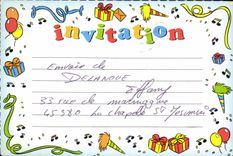 invitation
Envoie de
DELANOUE
Tiffany
33 rue de
45380 La chapelle St Mesmin